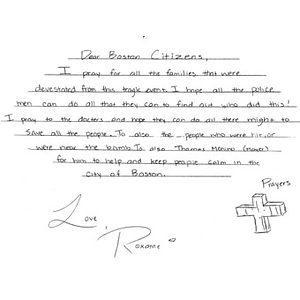 Dear Boston Citizens,
I pray for all the families that were
devestated from this tragic event. I hope all the police
men can do all that they can to find out who did this!
I pray to the doctors and hope they can do all there might to
save all the people. To also the people who were hit, or
were near the bomb. To also Thomas Menino (mayor)
for him to help and keep people calm in the
city of Boston.
Prayers
Love,
Roxanne